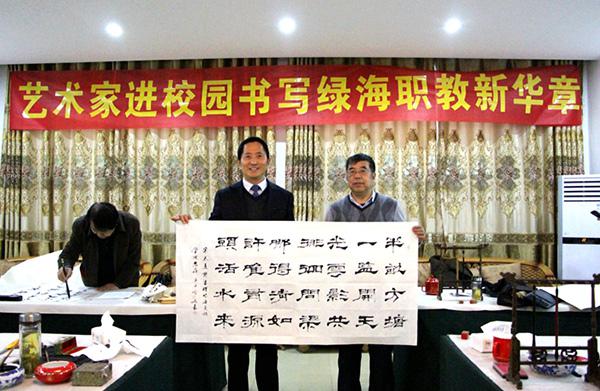 艺术家进校园书写绿海职教新华章
半畝方塘
一鑑開天
光雲影共
徘徊問渠
那得清如
許為有源
頭活水來